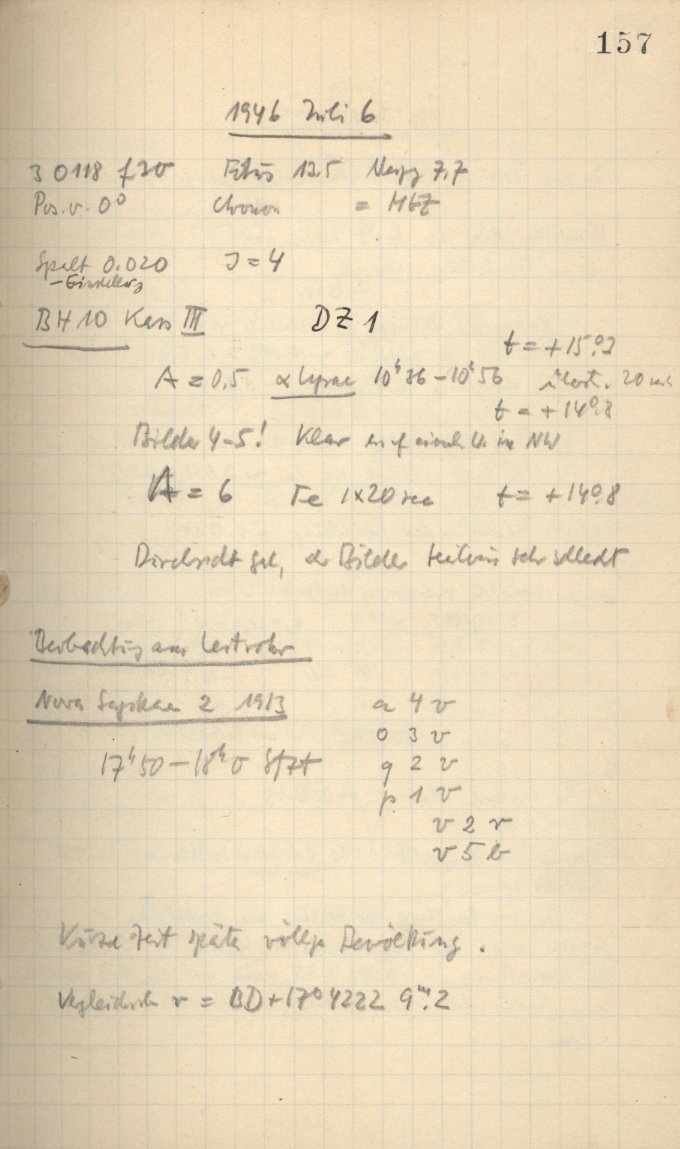 157
1946 Juli 6
3 0118 f20 Fokus 12.5 Neigg 7,7
Pos.v. 0° Chronom = MEZ
Spalt 0.020 J = 4
- Einstellung
BH10 Kass III DZ 1
t = +15°.2
A = 0,5 α Lyrae 10h36 - 10h56 20
t = +14°.8
Bilder 4-5! Klar in NW
A = 6 Fe 1x20 sec t = +14°.8
Durchsicht gut, Bilder teilweis sehr schlecht
Beobachtung am Leitrohr
Nova Sagittae 2 1913
17h50 - 18h0 StZt
a 4 v
o 3 v
q 2 v
p 1 v
v 2 r
v 5 b
Kurze Zeit später völlige Bewölkung.
Vergleichsst r = BD+17° 4222 9m.2